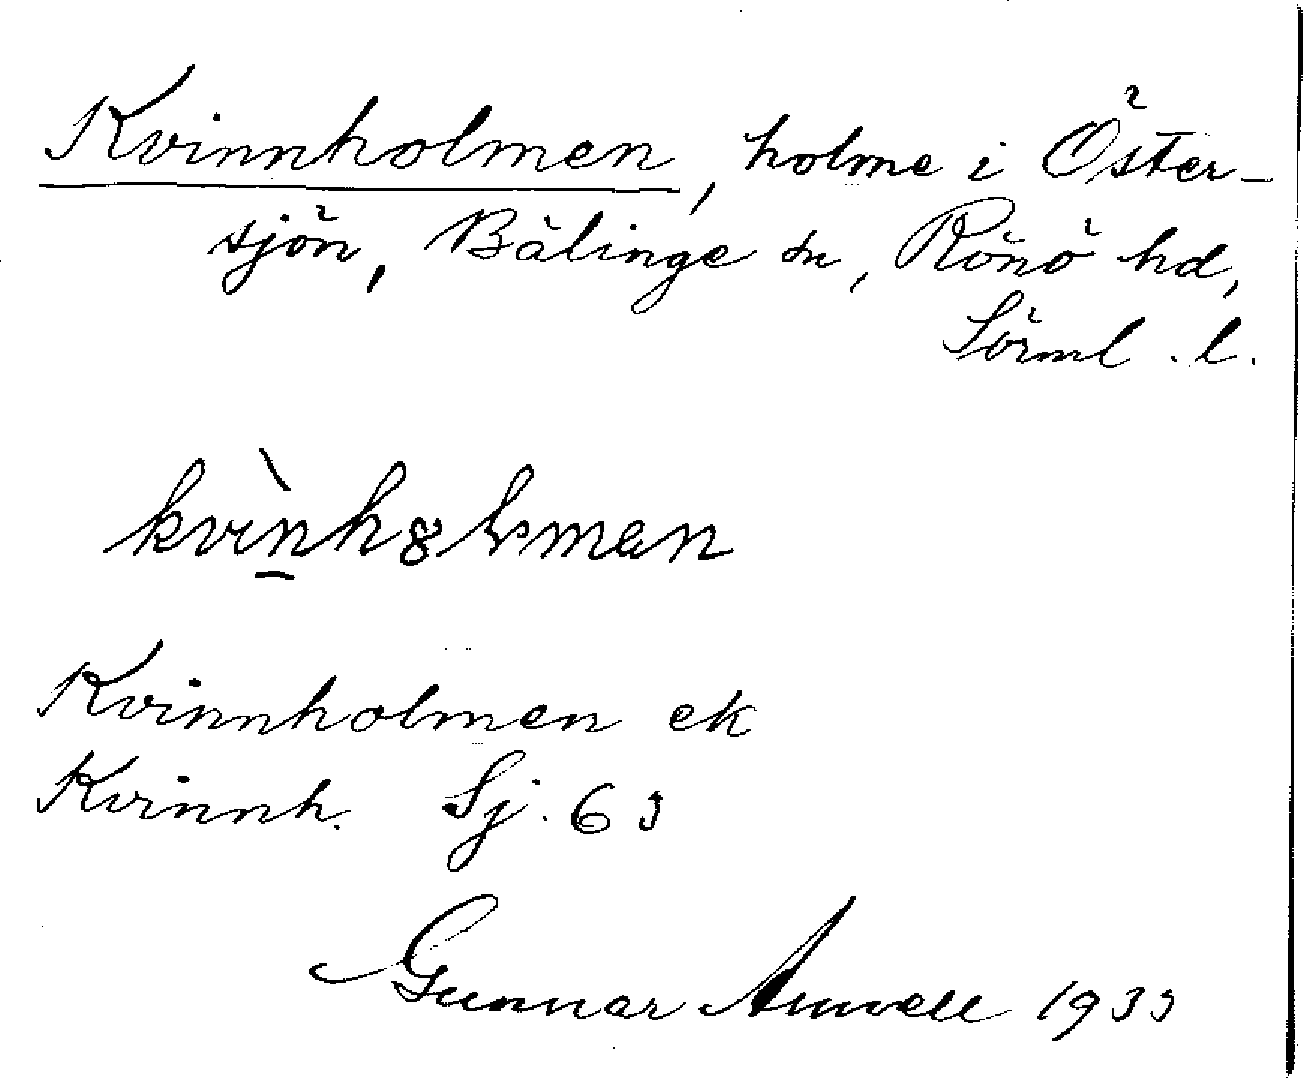 Kvinnholmen, holme i Öster-
sjön, Bälinge sn, Rönö hd,
Sörml. l.
kvìn̠hȣlmen
Kvinnholmen ek
Kvinnh. Sj. 63
Gunnar 1933